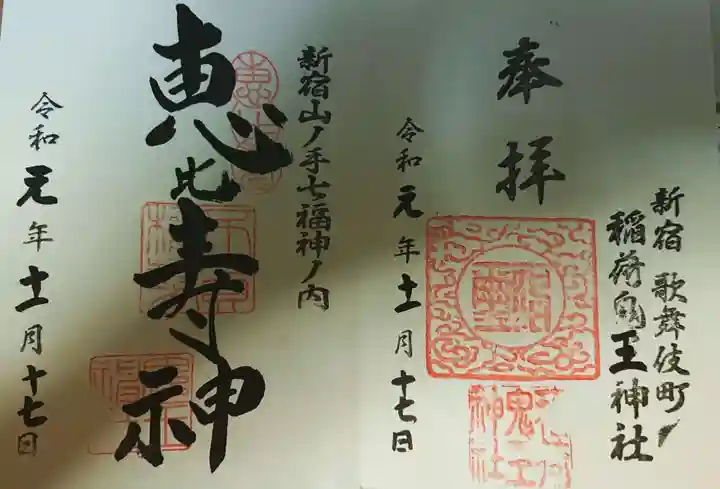 奉拝
新宿歌舞伎町ノ
稲荷鬼王神社
令和元年十一月十七日
新宿山ノ手七福神ノ内
恵比寿神
令和元年十一月十七日